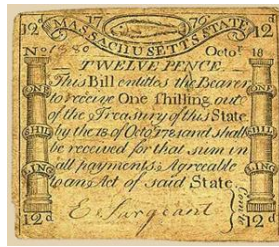 12d 17 79 12
MASSACHUSETTS STATE
No 1880 Octor. 18
TWELVE PENCE
This Bill entitles the Bearer
to receive One Shilling out
of the Treasury of this State
by the 18. of Octor. 1782 and shall
be received for that sum in
all payments Agreeable
to an Act of said State.
ONE ONE
SHIL SHIL
LING LING
E Sargeant
12d 12d